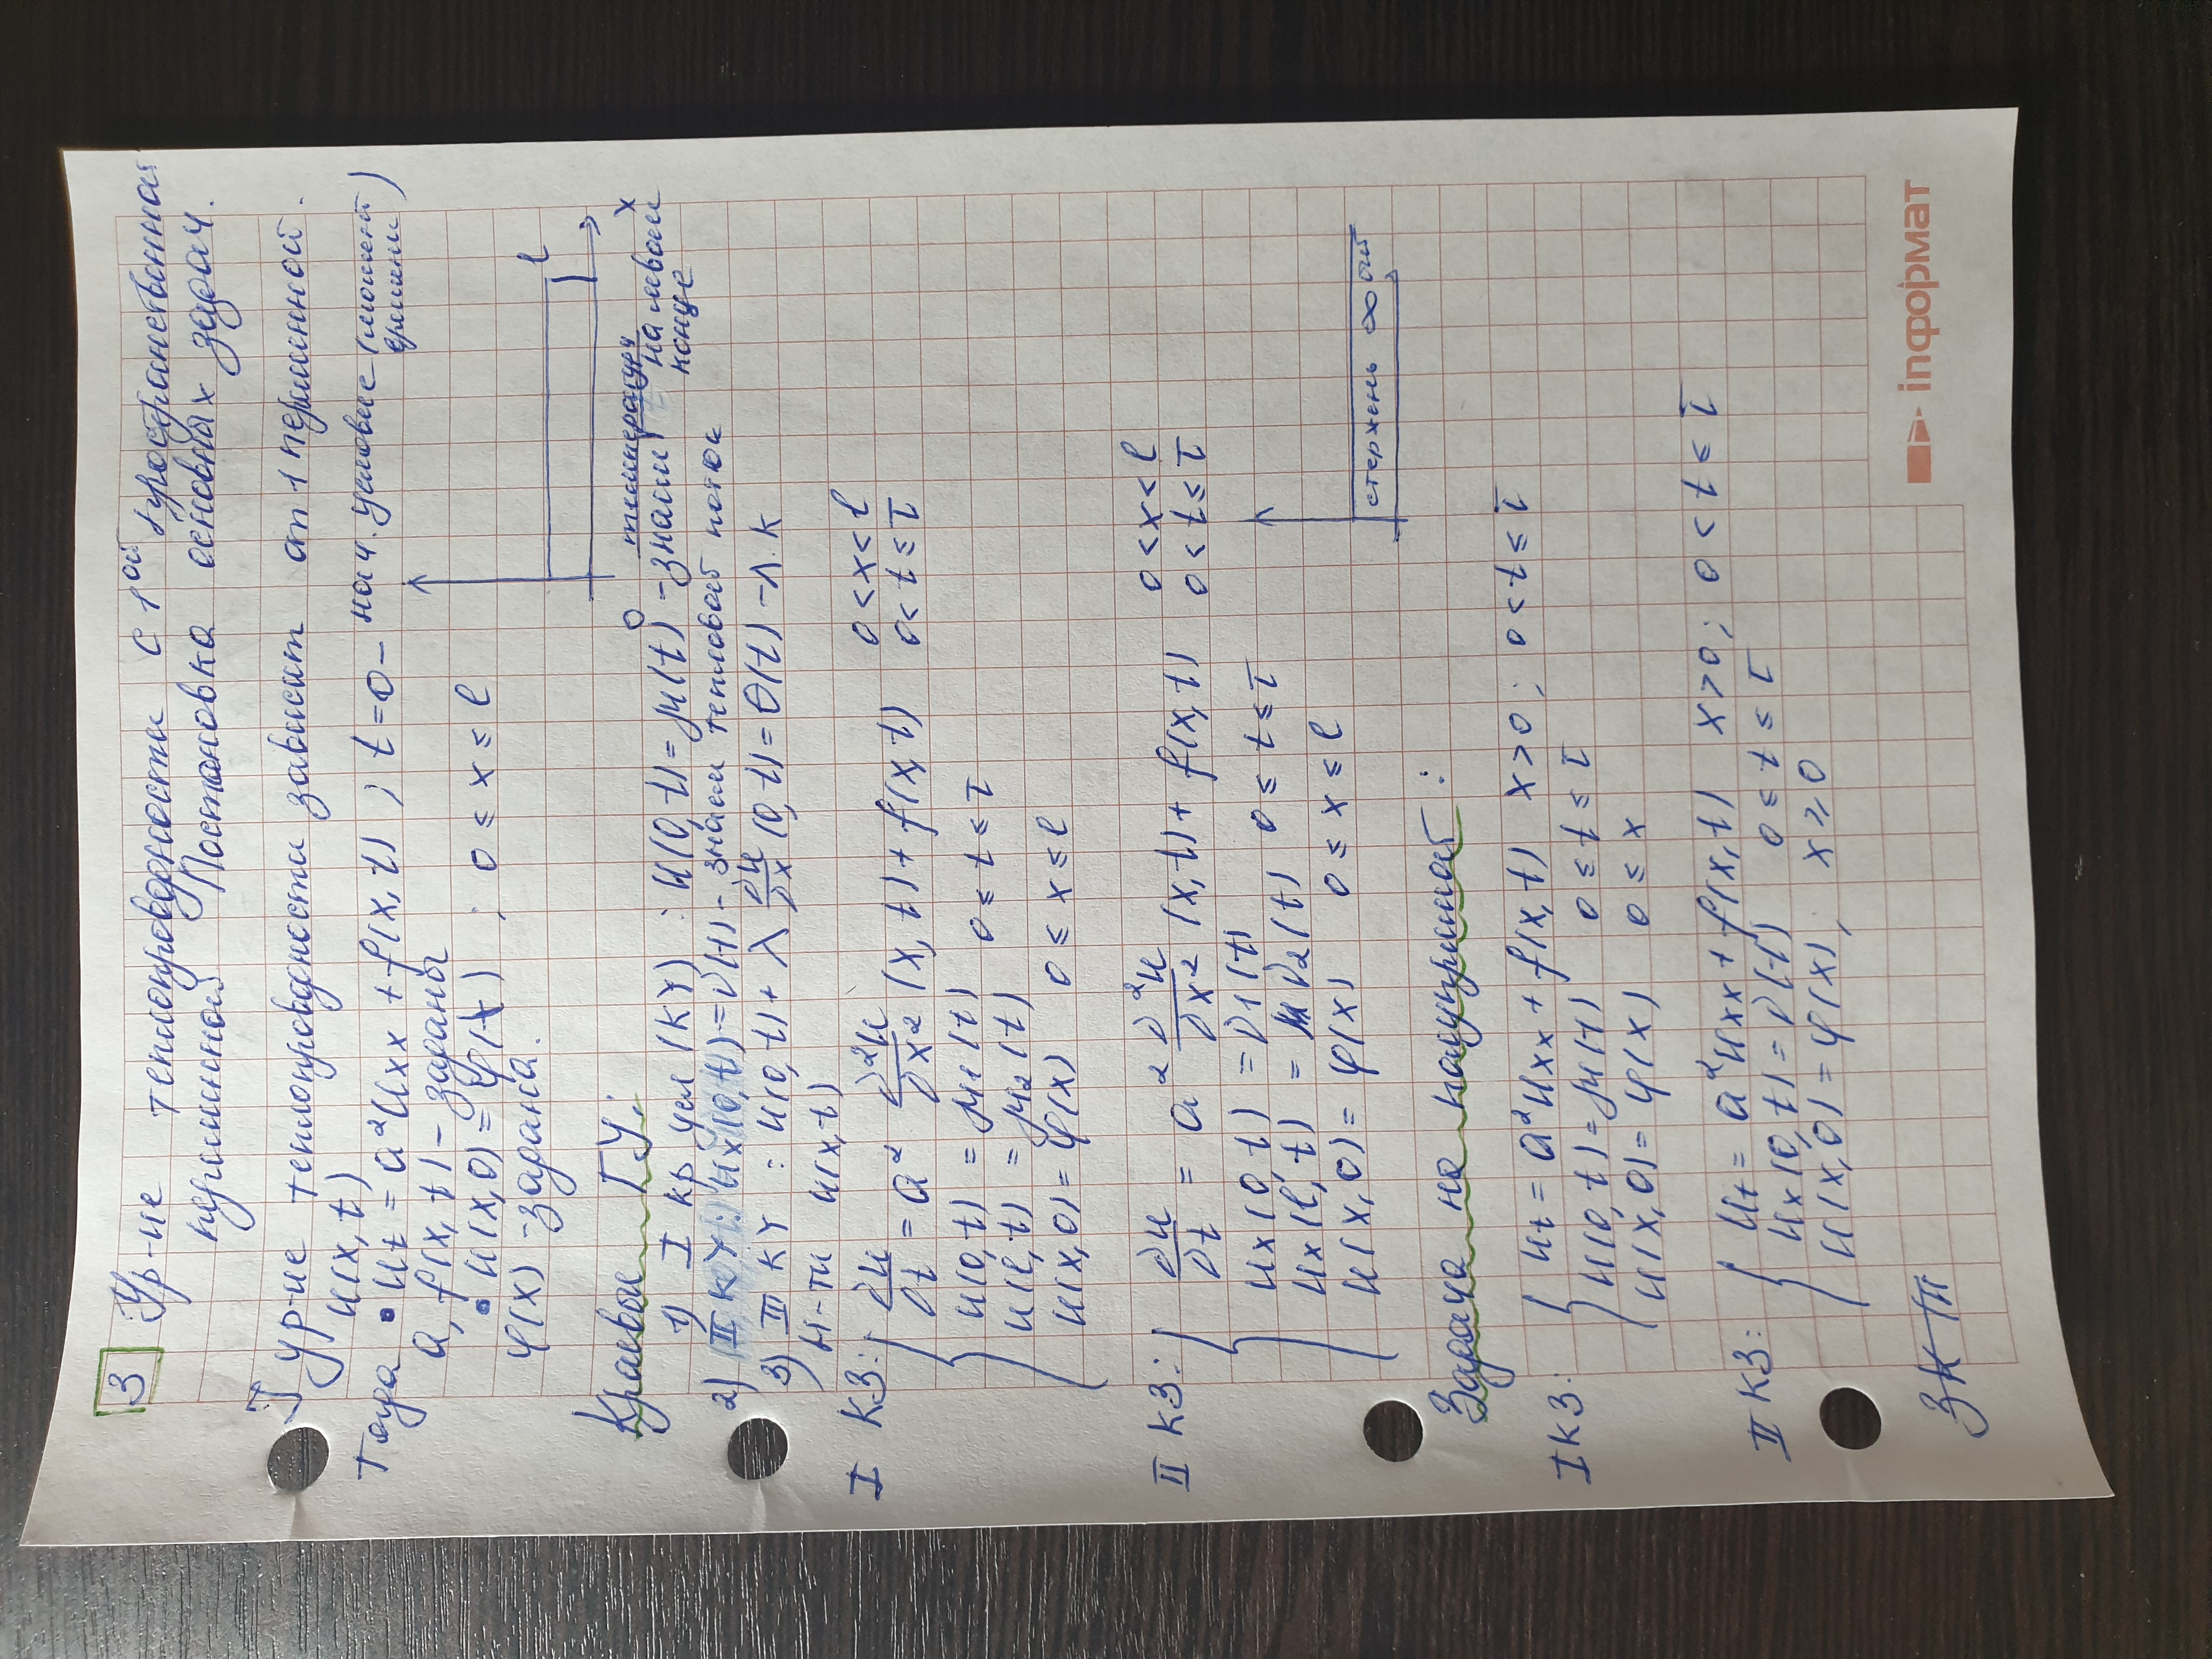 3 Ур-ие теплопроводности с 1ой пространственной
переменной. Постановка основных задач.
] ур-ие теплопроводности зависит от 1 переменной.
u(x,t)
Тогда • u_t = a²u_xx + f(x,t) ; t=0 – нач. условие (момент времени)
a, f(x,t) – заданы
• u(x,0) = φ(t) ; 0 ≤ x ≤ l
φ(x) – задана.
l
0 x
Краевои ГУ:
1) I кр усл (КУ) : u(0,t) = μ(t) – знаем температуру на левом конце
2) II КУ: u_x(0,t) = ν(t) – знаем тепловой поток
3) III КУ : u(0,t) + λ ∂u/∂x (0,t) = θ(t) – л.к
н-ти u(x,t)
I КЗ: { ∂u/∂t = a² ∂²u/∂x² (x,t) + f(x,t) 0 < x < l
0 < t ≤ T
u(0,t) = μ1(t) 0 ≤ t ≤ T
u(l,t) = μ2(t)
u(x,0) = φ(x) 0 ≤ x ≤ l
II КЗ: { ∂u/∂t = a² ∂²u/∂x² (x,t) + f(x,t) 0 < x < l
0 < t ≤ T
u_x(0,t) = ν1(t)
u_x(l,t) = ν2(t) 0 ≤ t ≤ T
u(x,0) = φ(x) 0 ≤ x ≤ l
стержень ∞ый
Задача на полупрямой:
I КЗ: { u_t = a²u_xx + f(x,t) x>0; 0 < t ≤ T
u(0,t) = μ(t) 0 ≤ t ≤ T
u(x,0) = φ(x) 0 ≤ x
II КЗ: { u_t = a²u_xx + f(x,t) x>0; 0 < t ≤ T
u_x(0,t) = ν(t) 0 ≤ t ≤ T
u(x,0) = φ(x), x ≥ 0
inформат